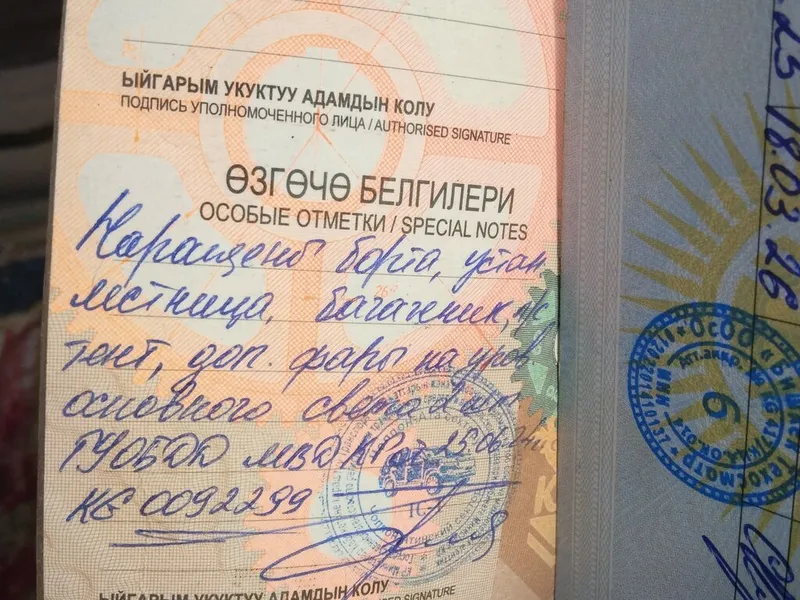 ЫЙГАРЫМ УКУКТУУ АДАМДЫН КОЛУ
ПОДПИСЬ УПОЛНОМОЧЕННОГО ЛИЦА / AUTHORISED SIGNATURE
ӨЗГӨЧӨ БЕЛГИЛЕРИ
ОСОБЫЕ ОТМЕТКИ / SPECIAL NOTES
Наращены борта, устан
лестница, багажник,
тент, доп. фары на уров
основного света
ГУОБДД МВД КР от 25.06.24
КЕ 0092299
ЫЙГАРЫМ УКУКТУУ АДАМДЫН КОЛУ
AUTHORISED SIGNATURE
18.03.26
ОсОО
6